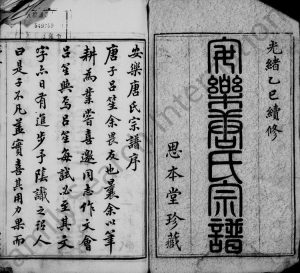 光緒乙巳續修
安樂唐氏宗譜
思本堂珍藏
安樂唐氏宗譜序
唐子呂笙余畏友也曩余以筆
耕為業嘗喜邀同志作文會
呂笙與焉呂笙每試必至其文
字亦日有進步予陰識之語人
曰是子不凡益實喜其用力果而